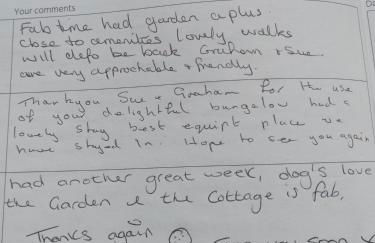 Your comments
Fab time had garden a plus.
close to amenities lovely walks
will defo be back Graham & Sue
are very approchable & friendly.
Thankyou Sue & Graham for the use
of your delightful bungalow had a
lovely stay best equipt place we
have stayed in. Hope to see you again
had another great week, dog's love
the Garden & the Cottage is fab,
Thanks again